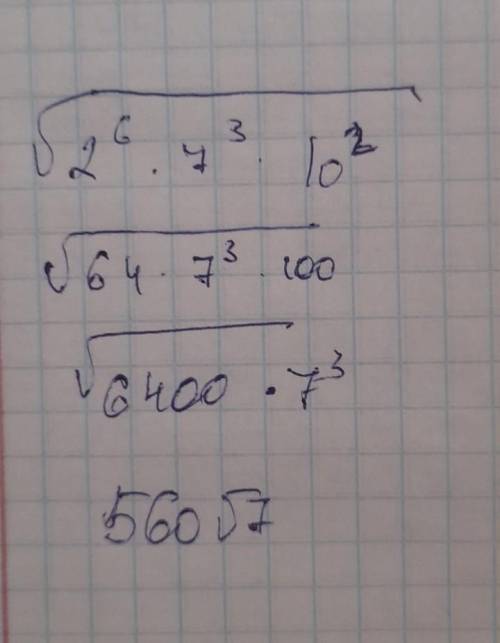 √2⁶ · 7³ · 10²
√64 · 7³ · 100
√6400 · 7³
560√7